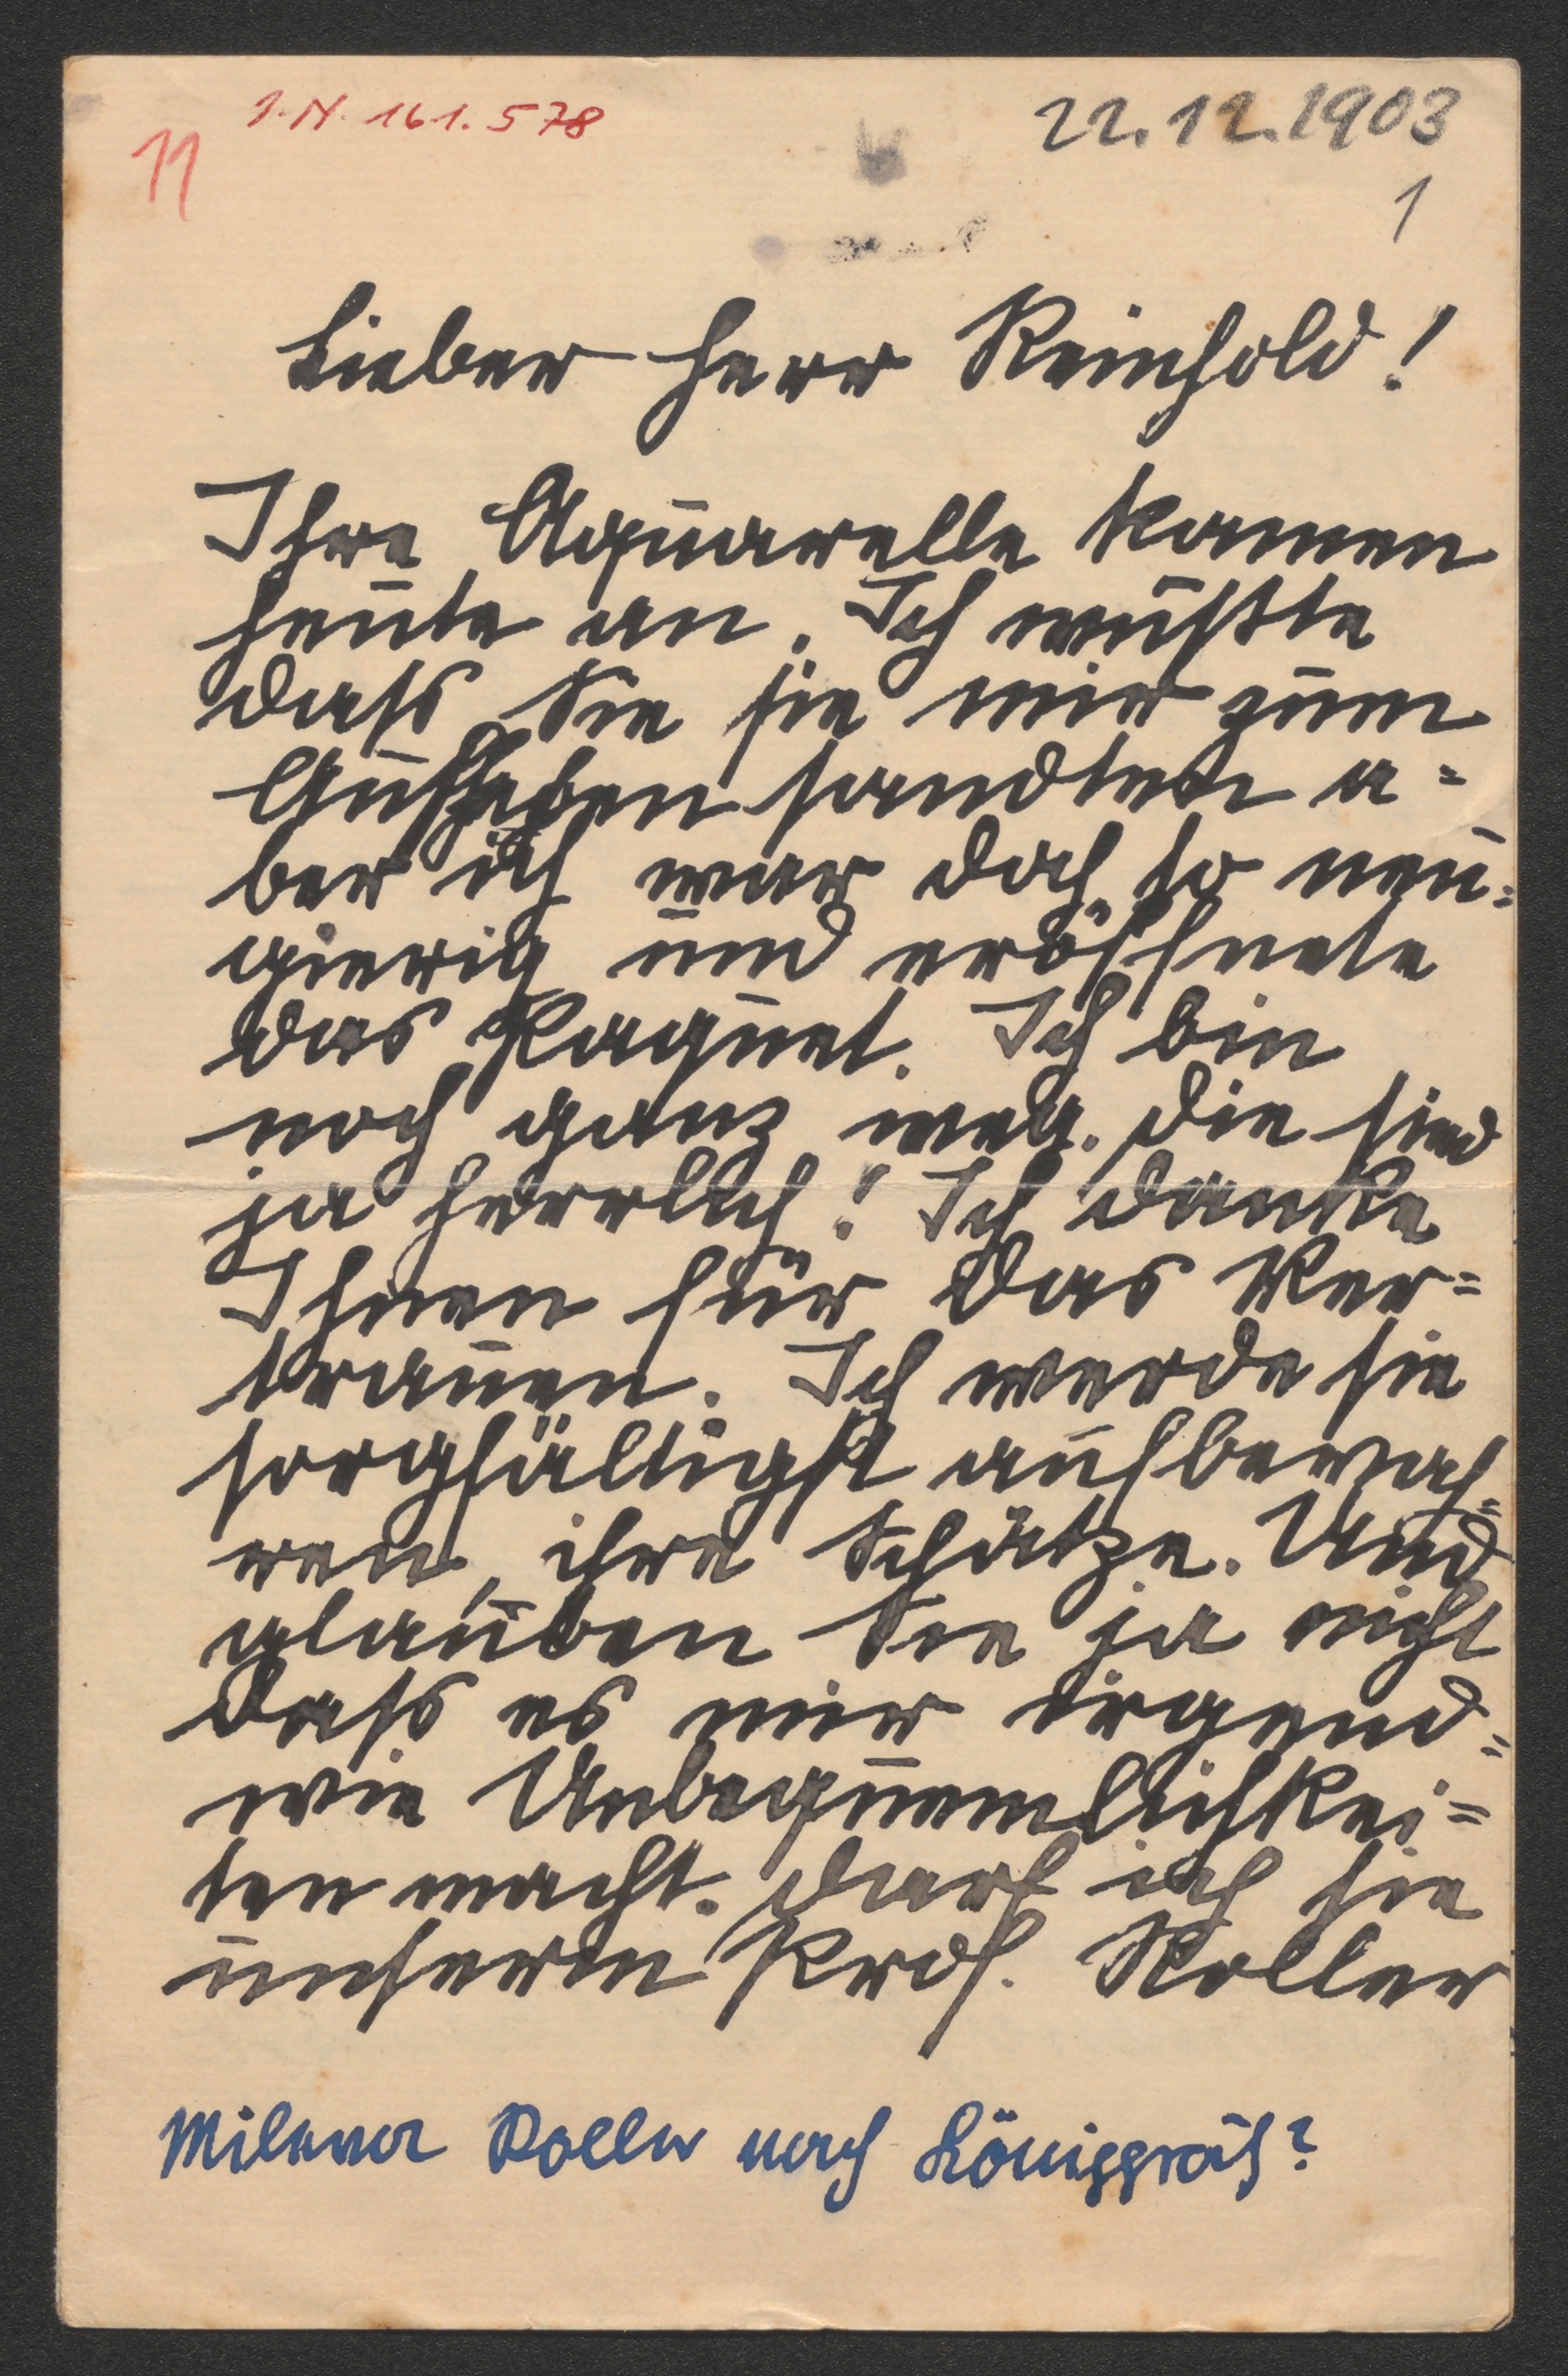 I.N. 161.578
22.12.1903
11
1
Lieber Herr Reinhold!
Ihre Aquarelle kamen
heute an. Ich wußte
dass Sie sie mir zum
Aufheben sandten a=
ber ich war doch so neu=
gierig und eröffnete
das Paquet. Ich bin
noch ganz weg. Die sind
ja herrlich! Ich danke
Ihnen für das Ver=
trauen. Ich werde sie
sorgfältigst aufbewah=
ren, ihre Schätze. Und
glauben Sie ja nicht
dass es mir irgend=
wie Unbequemlichkei=
ten macht. Darf ich sie
unserm Prof. Roller
Mileva Roller nach Königgrätz?